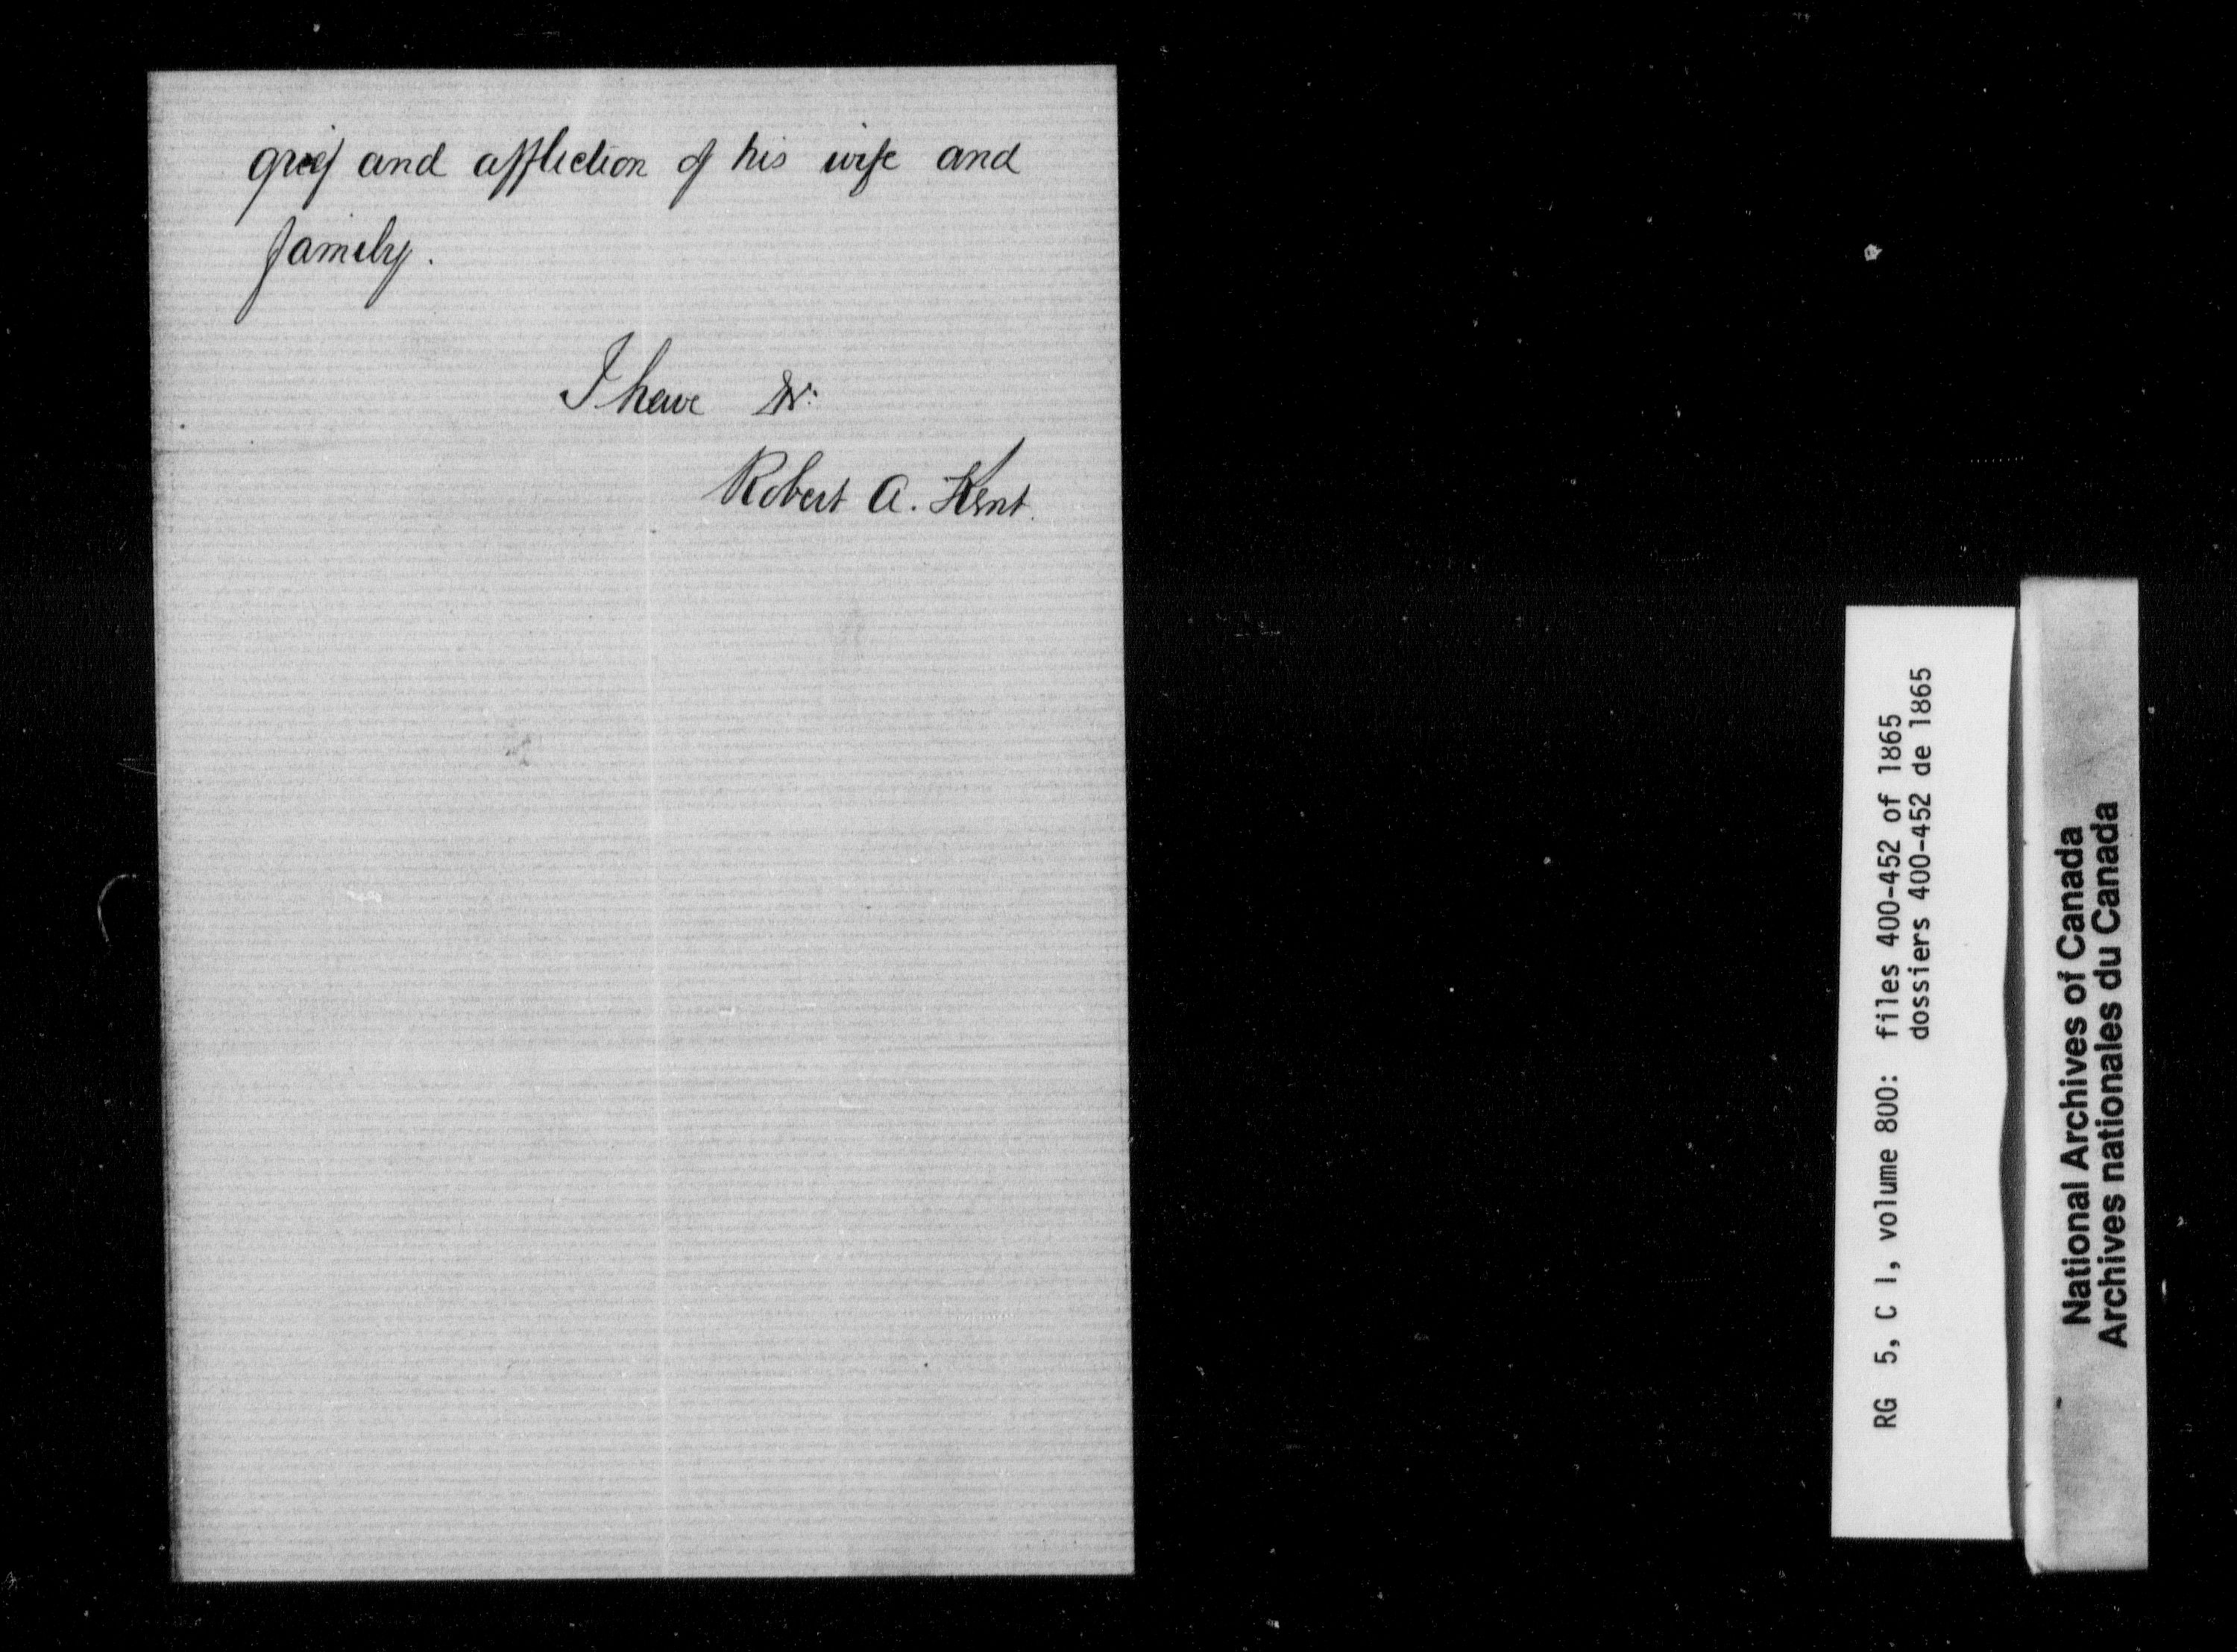 grief and affliction of his wife and
family.
I have &c:
Robert A. Kent.
RG 5, C 1, volume 800: files 400-452 of 1865
dossiers 400-452 de 1865
National Archives of Canada
Archives nationales du Canada